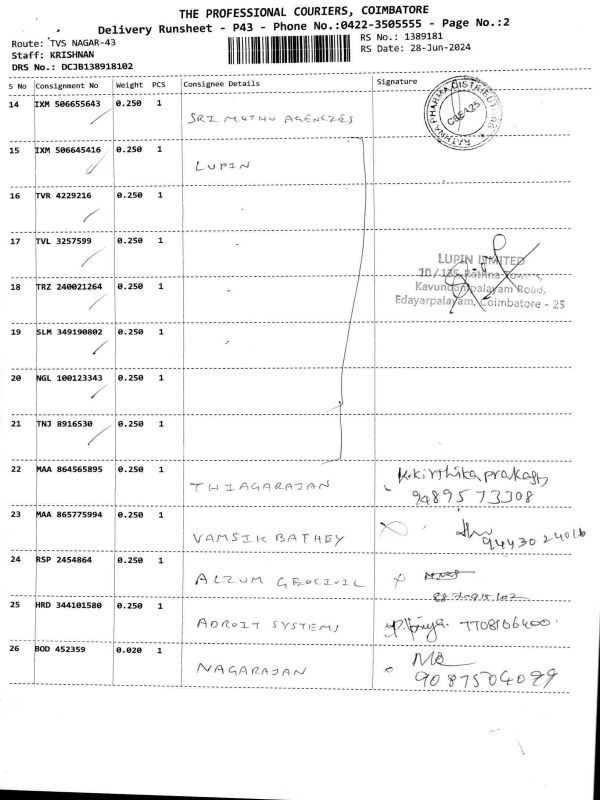 THE PROFESSIONAL COURIERS, COIMBATORE
Delivery Runsheet - P43 - Phone No.:0422-3505555 - Page No.:2
Route: TVS NAGAR-43 RS No.: 1389181
Staff: KRISHNAN RS Date: 28-Jun-2024
DRS No.: DCJB138918102
S No Consignment No Weight PCS Consignee Details Signature
14 IXM 506655643 0.250 1 SRI MUTHU AGENCIES
RATHNA PHARMA DISTRIBUTORS CBE-25
15 IXM 506645416 0.250 1 LUPIN
16 TVR 4229216 0.250 1
17 TVL 3257599 0.250 1
LUPIN LIMITED
10/135, Rathna Towers,
Kavundampalayam Road,
Edayarpalayam, Coimbatore - 25
18 TRZ 240021264 0.250 1
19 SLM 349190802 0.250 1
20 NGL 100123343 0.250 1
21 TNJ 8916530 0.250 1
22 MAA 864565895 0.250 1 THIAGARAJAN K.kirthika prakash
9489573308
23 MAA 865775994 0.250 1 VAMSIK BATHEY
9443024016
24 RSP 2454864 0.250 1 ALZUM GEOCIVIL
25 HRD 344101580 0.250 1 ADROIT SYSTEMS 7708166400
26 BOD 452359 0.020 1 NAGARAJAN
9087504099